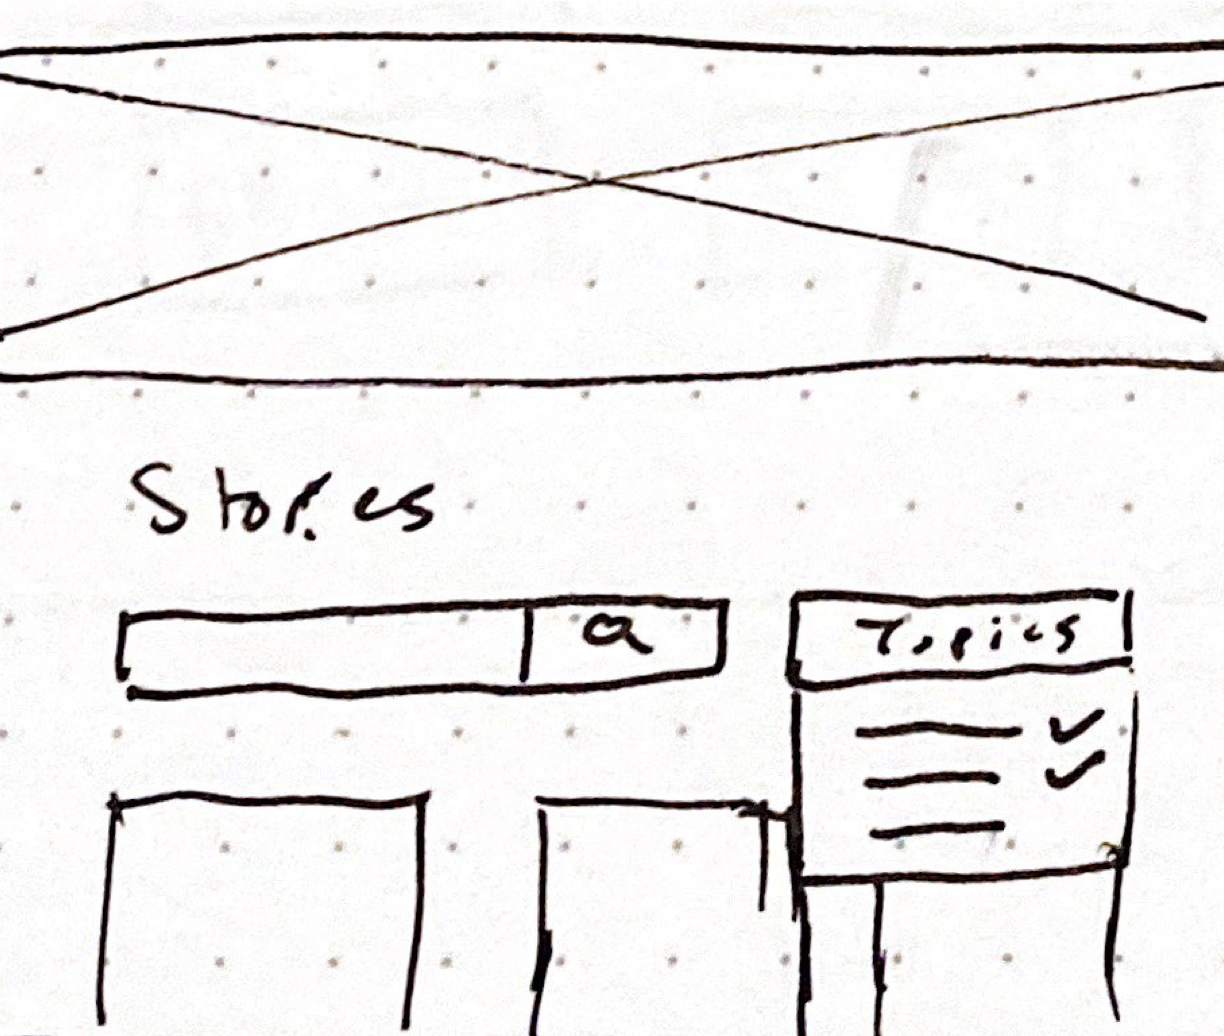 Stories
Topics